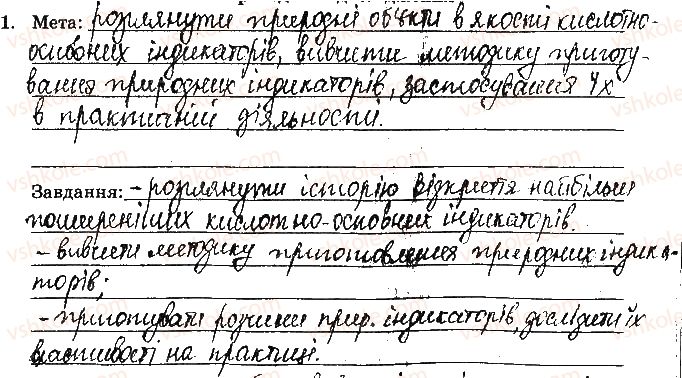 1. Мета: розглянути природні об'єкти в якості кислотно-
основних індикаторів, вивчити методику приготу-
вання природних індикаторів, застосування їх
в практичній діяльності.
Завдання: - розглянути історію відкриття найбільш
поширеніших кислотно-основних індикаторів.
- вивчити методику приготовлення природних індика-
торів;
- приготувати розчини прир. індикаторів, дослідити їх
властивості на практиці.